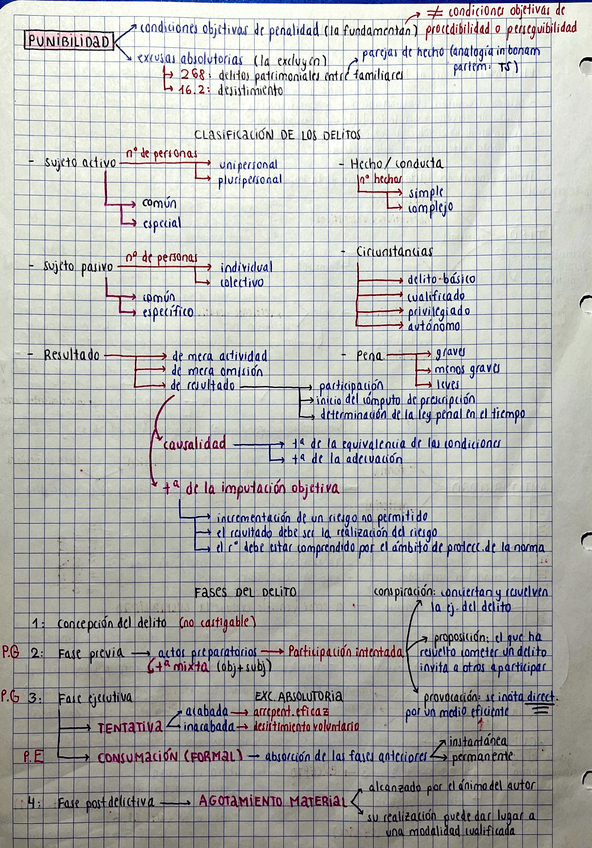 ≠ condiciones objetivas de
condiciones objetivas de penalidad (la fundamentan) procedibilidad o perseguibilidad
PUNIBILIDAD
excusas absolutorias (la excluyen) parejas de hecho (analogía in bonam
268: delitos patrimoniales entre familiares partem: TS)
16.2: desistimiento
CLASIFICACIÓN DE LOS DELITOS
- Sujeto activo nº de personas unipersonal
pluripersonal
común
especial
- Hecho/conducta
nº hechos
simple
complejo
- Sujeto pasivo nº de personas individual
colectivo
común
específico
- Circunstancias
delito básico
cualificado
privilegiado
autónomo
- Resultado de mera actividad
de mera omisión
de resultado participación
inicio del cómputo de prescripción
determinación de la ley penal en el tiempo
- Pena graves
menos graves
leves
causalidad tª de la equivalencia de las condiciones
tª de la adecuación
tª de la imputación objetiva
incrementación de un riesgo no permitido
el resultado debe ser la realización del riesgo
el rº debe estar comprendido por el ámbito de protecc. de la norma
FASES DEL DELITO
1: Concepción del delito (no castigable)
P.G 2: Fase previa actos preparatorios Participación intentada
tª mixta (obj+subj)
conspiración: conciertan y resuelven
la ej. del delito
proposición: el que ha
resuelto cometer un delito
invita a otros a participar
provocación: se incita direct.
por un medio eficiente
P.G 3: Fase ejecutiva EXC. ABSOLUTORIA
TENTATIVA acabada arrepent. eficaz
inacabada desistimiento voluntario
P.E CONSUMACIÓN (FORMAL) absorción de las fases anteriores instantánea
permanente
4: Fase postdelictiva AGOTAMIENTO MATERIAL alcanzado por el ánimo del autor
su realización puede dar lugar a
una modalidad cualificada